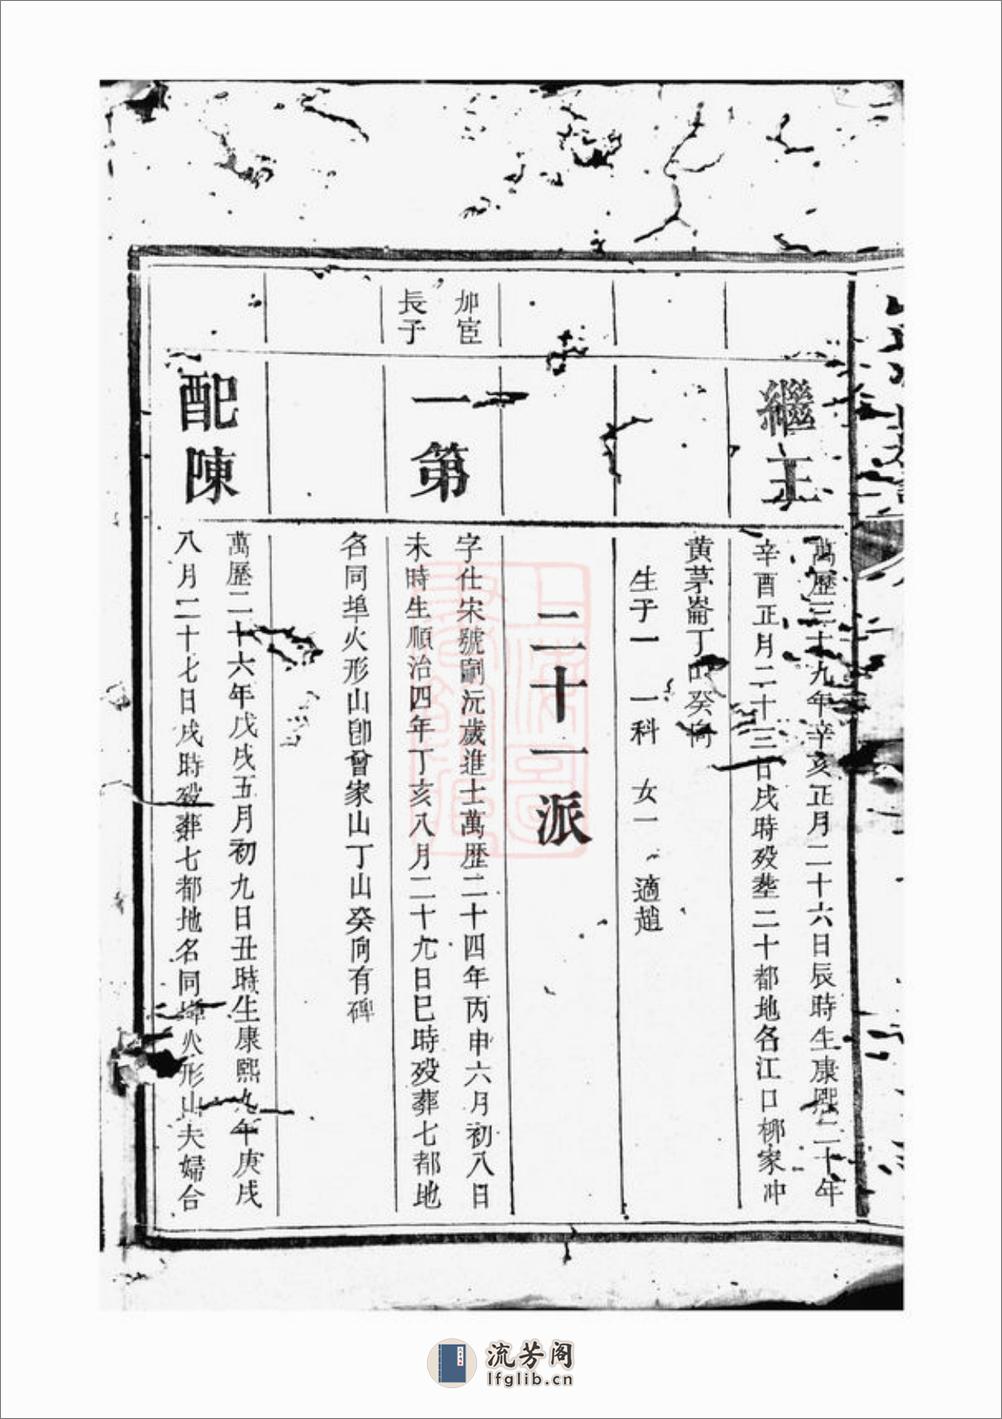 繼王
萬歷三十九年辛亥正月二十六日辰時生康熙二十年
辛酉正月二十三日戌時殁塟二十都地名江口柳家冲
黄茅崙丁山癸向
生子一 一科 女一 適趙
二十一派
加宦
長子
一第
字仕宋號嗣沅歲進士萬歷二十四年丙申六月初八日
未時生順治四年丁亥八月二十九日巳時殁葬七都地
名同埠火形山卽曾家山丁山癸向有碑
配陳
萬歷二十六年戊戌五月初九日丑時生康熙九年庚戌
八月二十七日戌時殁葬七都地名同埠火形山夫婦合
流芳阁
lfglib.cn